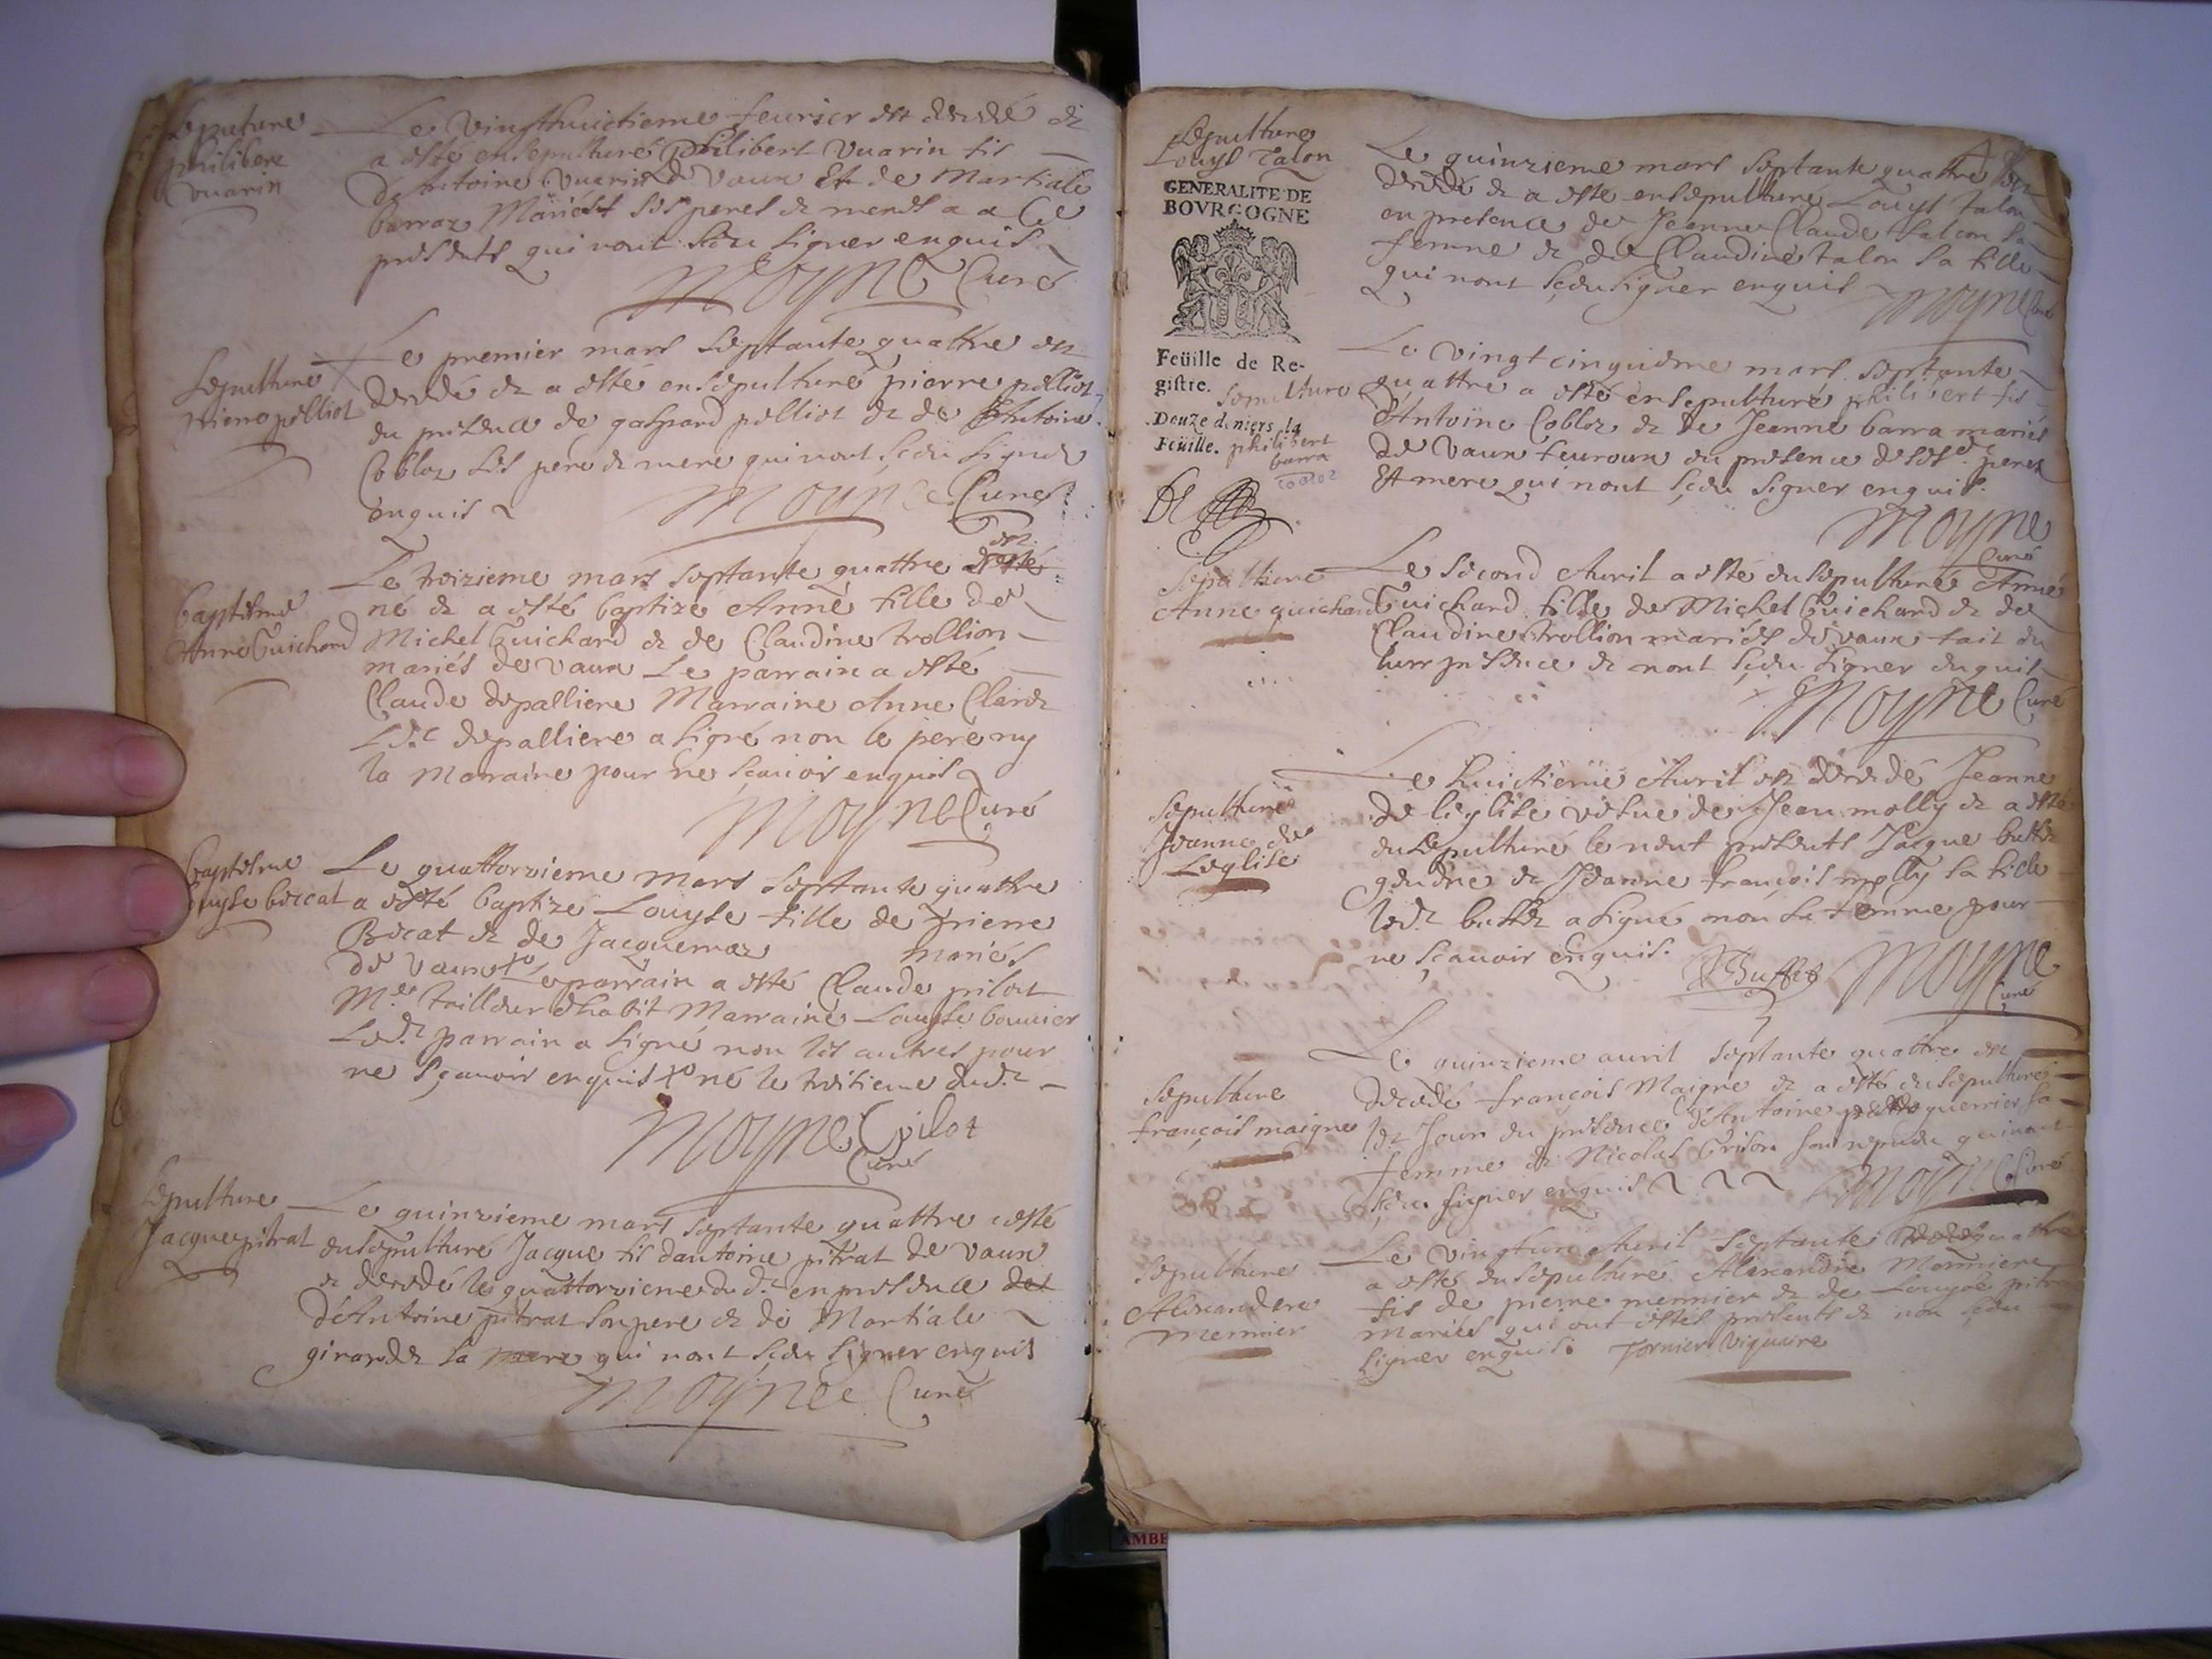 Sepulture
philibert
vuarin
Le vingthuictieme feurier est decedé et
a esté ensepulturé philibert vuarin fis
d'Antoine vuarin de vaux Et de Martiale
barraz Mariést ses peres et meres a ce
presents qui nont sceu signer enquis
Moyne Curé
Sepulture
pierre pelliot
Le premier mars septante quattre est
decedé et a esté ensepulturé pierre pelliot
en presence de gaspard pelliot et de Antoine
Cobloz ses pere et mere qui nont sceu signer
enquis
Moyne Curé
Baptesme
Anne Guichard
Le troizieme mars septante quattre est
né et a esté baptizé Anne fille de
Michel Guichard et de Claudine trollion
mariés de vaux Le parrain a esté
Claude depalliere Marraine Anne Clerc
Led.t depalliere a signé non le pere ny
la Marraine pour ne sçauoir enquis
Moyne Curé
Baptesme
Louyse boccat
Le quattorzieme mars septante quattre
a esté baptizé Louyse fille de pierre
Bocat et de Jacquemaz mariés
de vaux Le parrain a esté Claude pilot
M.e tailleur d'habit Marraine Louyse bouuier
Led.t parrain a signé non les autres pour
ne sçauoir enquis né le troisieme dud.t
Moyne Pilot
Curé
Sepulture
Jacque pitrat
Le quinzieme mars septante quattre a esté
ensepulturé Jacque fis dantoine pitrat de vaux
et decedé le quattorzieme dud.t en presence des
d'Antoine pitrat son pere et de Martiale
girardet sa mere qui nont sceu signer enquis
Moyne Curé
Sepulture
Louys Talon
GENERALITE DE
BOVRGOGNE
Feüille de Re-
gistre.
Douze deniers la
Feüille.
Le quinzieme mars septante quattre est
decedé et a esté ensepulturé Louys talon
en presence de Jeanne Claude falcon sa
femme et de Claudine talon sa fille
qui nont sceu signer enquis
Moyne Curé
Sepulture
philibert
barra
Cobloz
Le vingt cinquieme mars septante
quattre a esté ensepulturé philibert fis
d'Antoine Cobloz et de Jeanne barra mariés
de vaux feuroux en presence de sesd. peres
Et mere qui nont sceu signer enquis.
Moyne
Curé
Sepulture
Anne guichard
Le second Auril a esté ensepulturé Anne
Guichard fille de Michel Guichard et de
Claudine trollion mariés de vaux fait en
leur presence et nont sceu signer enquis
Moyne Curé
Sepulture
Jeanne de
Leglise
Le huictieme Auril est decedé Jeanne
de leglise vesue de Jean molly et a esté
ensepulturé le neuf presents Jacque buffet
gendre et Jeanne françois molly sa fille
led.t buffet a signé non sa femme pour
ne sçauoir enquis.
J Buffet Moyne
Curé
Sepulture
françois maigre
Le quinzieme auril septante quattre est
decedé françois Maigre et a esté ensepulturé
led.t Jour en presence d'Antoine guerrier sa
femme et Nicolas Grison qui nont
sceu signer enquis
Moyne Curé
Sepulture
Alexandre
mermier
Le vingtun Auril septante quattre
a esté ensepulturé Alexandre Mermier
fis de pierre mermier et de Louyse pitrat
mariés qui ont estés presents et non sceu
signer enquis. Tornier viquaire
AMBE